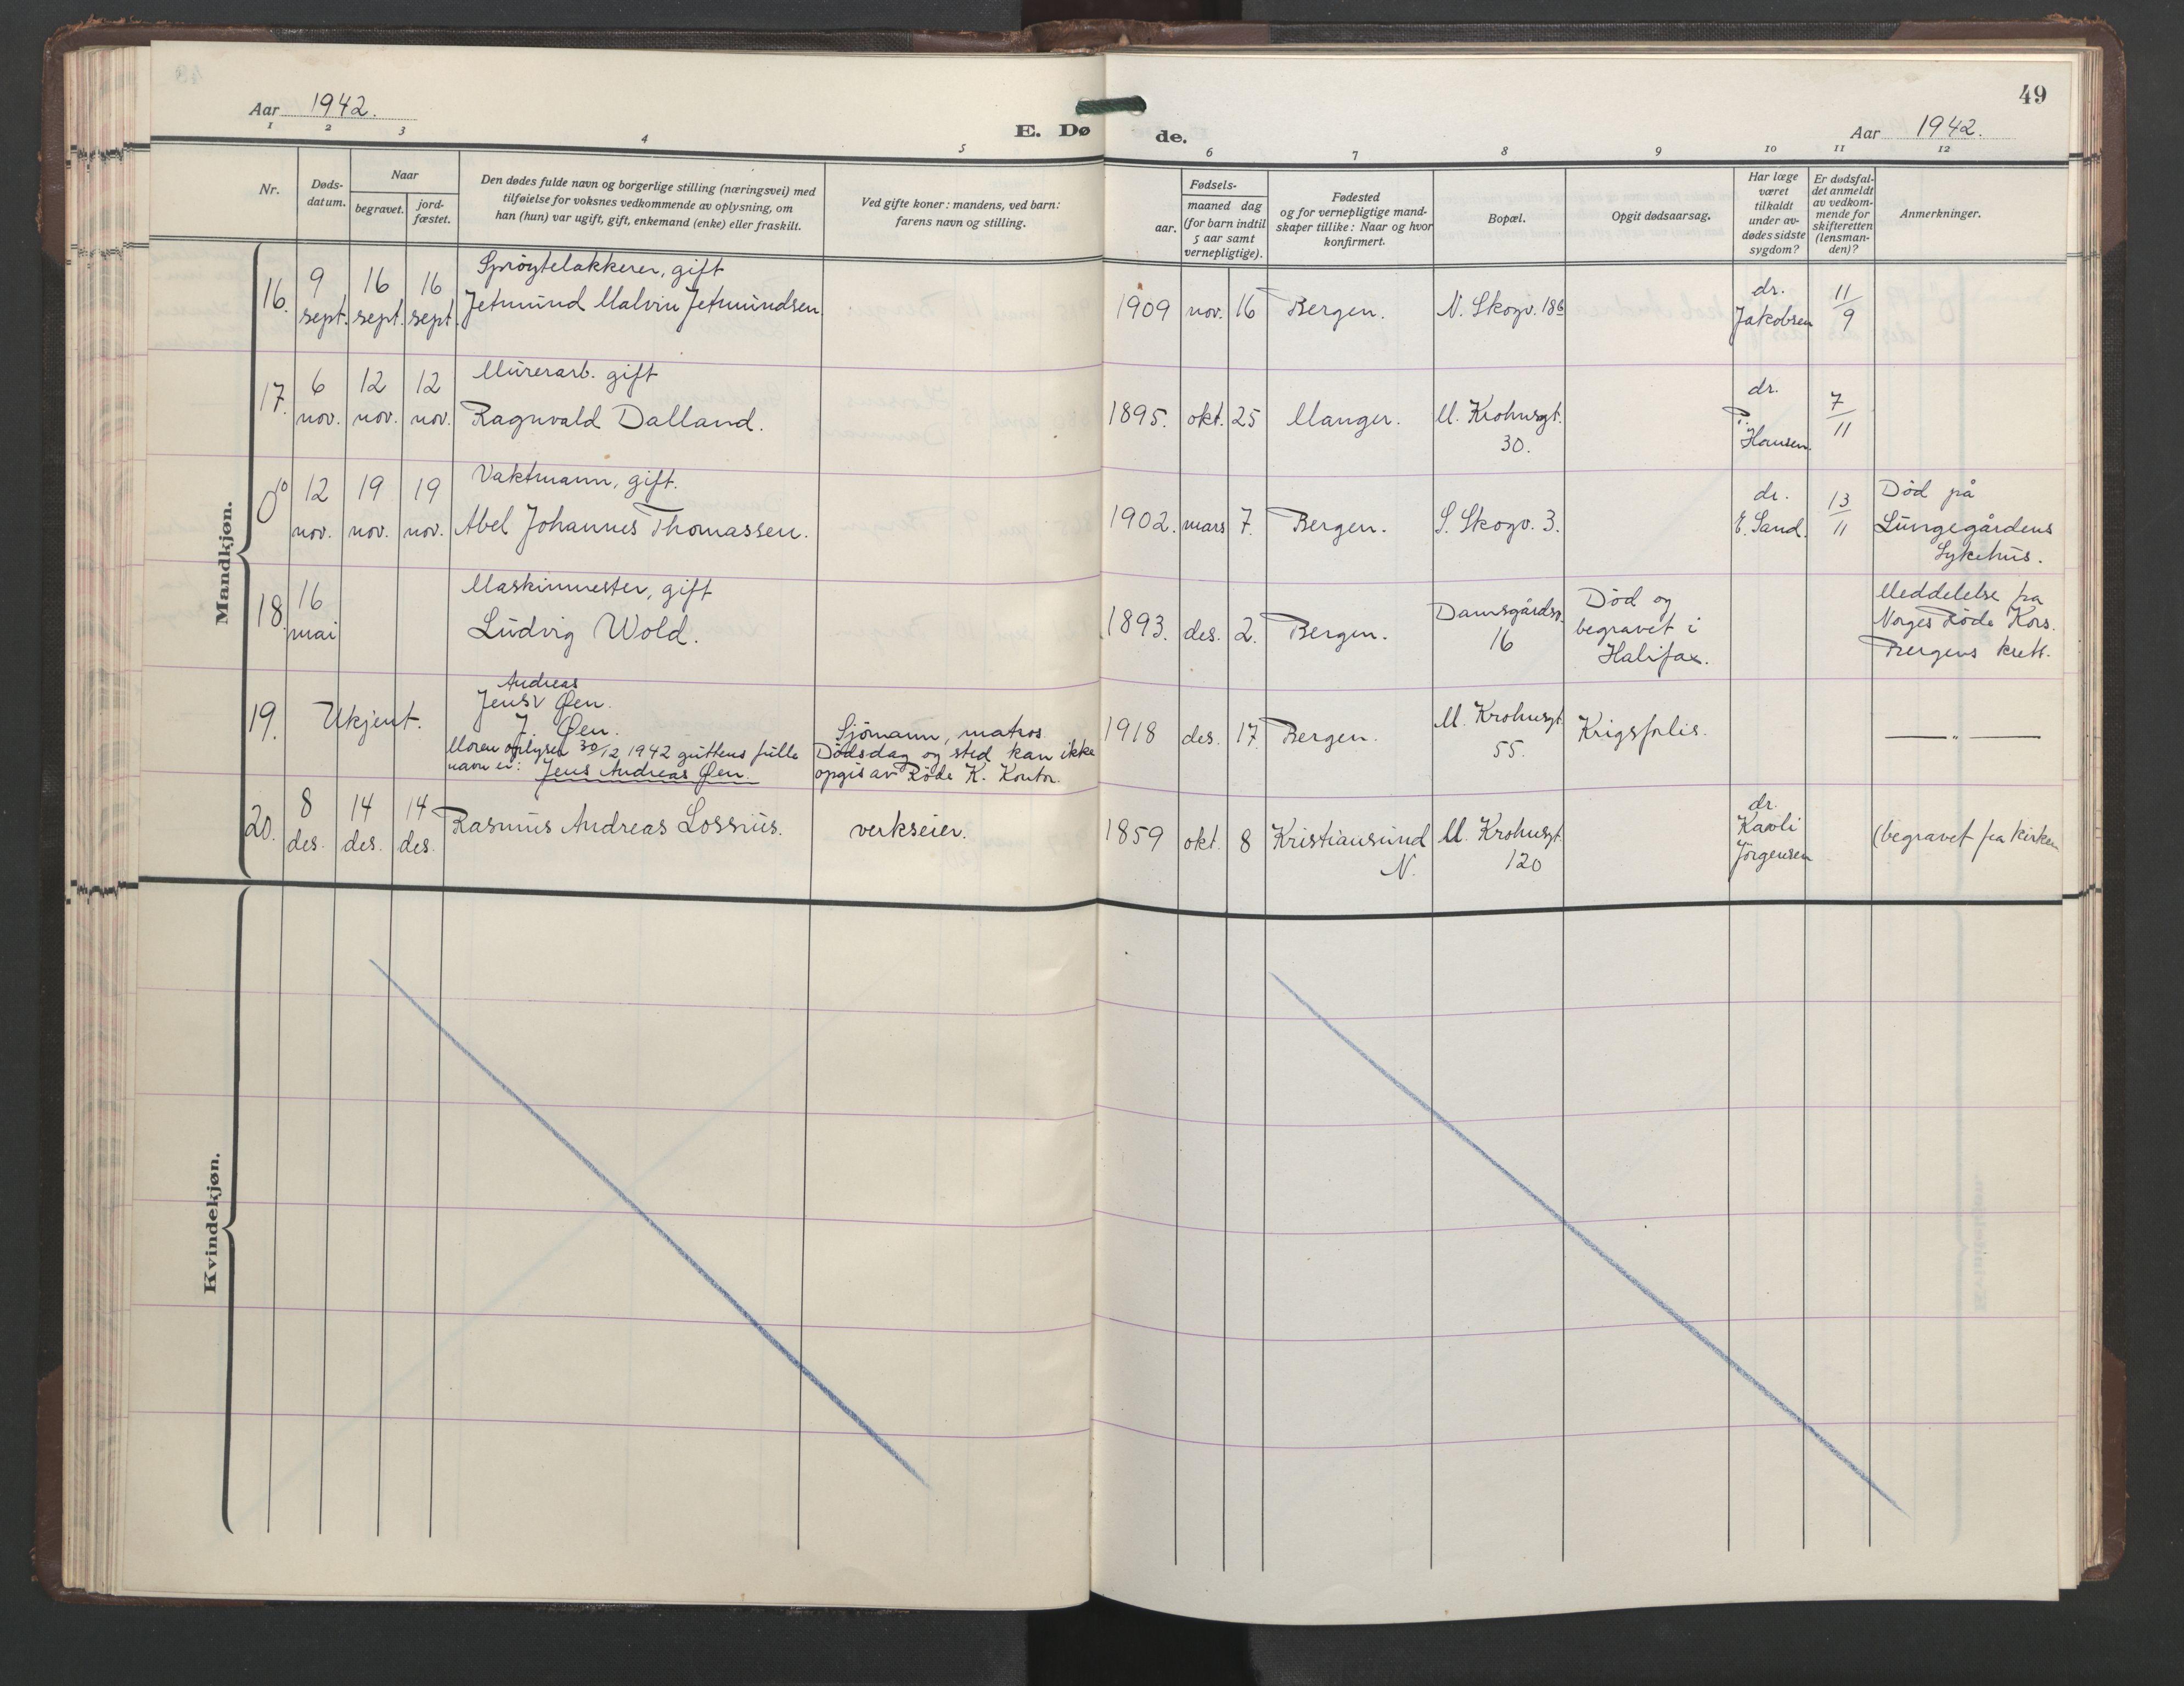 49
Aar 1942.
E. Dø
de.
Aar 1942.
1 2 3 4 5 6 7 8 9 10 11 12
Nr.
Døds-
datum.
Naar
begravet.
jord-
fæstet.
Den dødes fulde navn og borgerlige stilling (næringsvei) med
tilføielse for voksnes vedkommende av oplysning, om
han (hun) var ugift, gift, enkemand (enke) eller fraskilt.
Ved gifte koner: mandens, ved barn:
farens navn og stilling.
Fødsels-
aar. maaned dag
(for barn indtil
5 aar samt
vernepligtige).
Fødested
og for vernepligtige mand-
skaper tillike: Naar og hvor
konfirmert.
Bopæl.
Opgit dødsaarsag.
Har læge
været
tilkaldt
under av-
dødes sidste
sygdom?
Er dødsfal-
det anmeldt
av vedkom-
mende for
skifteretten
(lensman-
den)?
Anmerkninger.
Mandkjøn.
16. 9 sept. 16 sept. 16 sept.
Sprøytelakkerer, gift
Jetmund Malvin Jetmundsen.
1909 nov. 16 Bergen. N. Skogv. 18b
dr.
Jakobsen
11/9
17. 6 nov. 12 nov. 12 nov.
Murerarb. gift
Ragnvald Dalland.
1895. okt. 25 Manger. M. Krohnsgt.
30.
dr.
P.
Hansen.
7/11
0 12 nov. 19 nov. 19 nov.
Vaktmann, gift.
Abel Johannes Thomassen.
1902. mars 7. Bergen. S. Skogv. 3.
dr.
E. Sand.
13/11
Död på
Lungegårdens
Sykehus.
18. 16 mai
Maskinmester, gift
Ludvig Wold.
1893. des. 2. Bergen. Damsgårdsv.
16
Död og
begravet i
Halifax.
Meddelelse fra
Norges Röde Kors.
Bergens krets.
19. Ukjent.
Andreas
Jens V Øen.
J. Øen.
Moren oplyser 30/12 1942 guttens fulle
navn er: Jens Andreas Øen.
Sjömann, matros
Dödsdag og sted kan ikke
opgis av Röde K. Kontor.
1918 des. 17 Bergen. M. Krohnsgt.
55.
Krigsforlis.
— „ —
20. 8 des. 14 des. 14 des.
Rasmus Andreas Lossius.
verkseier.
1859 okt. 8 Kristiansund
N.
M. Krohnsgt.
120
dr.
Kavli
Jörgensen
(begravet fra kirken
Kvindekjøn.